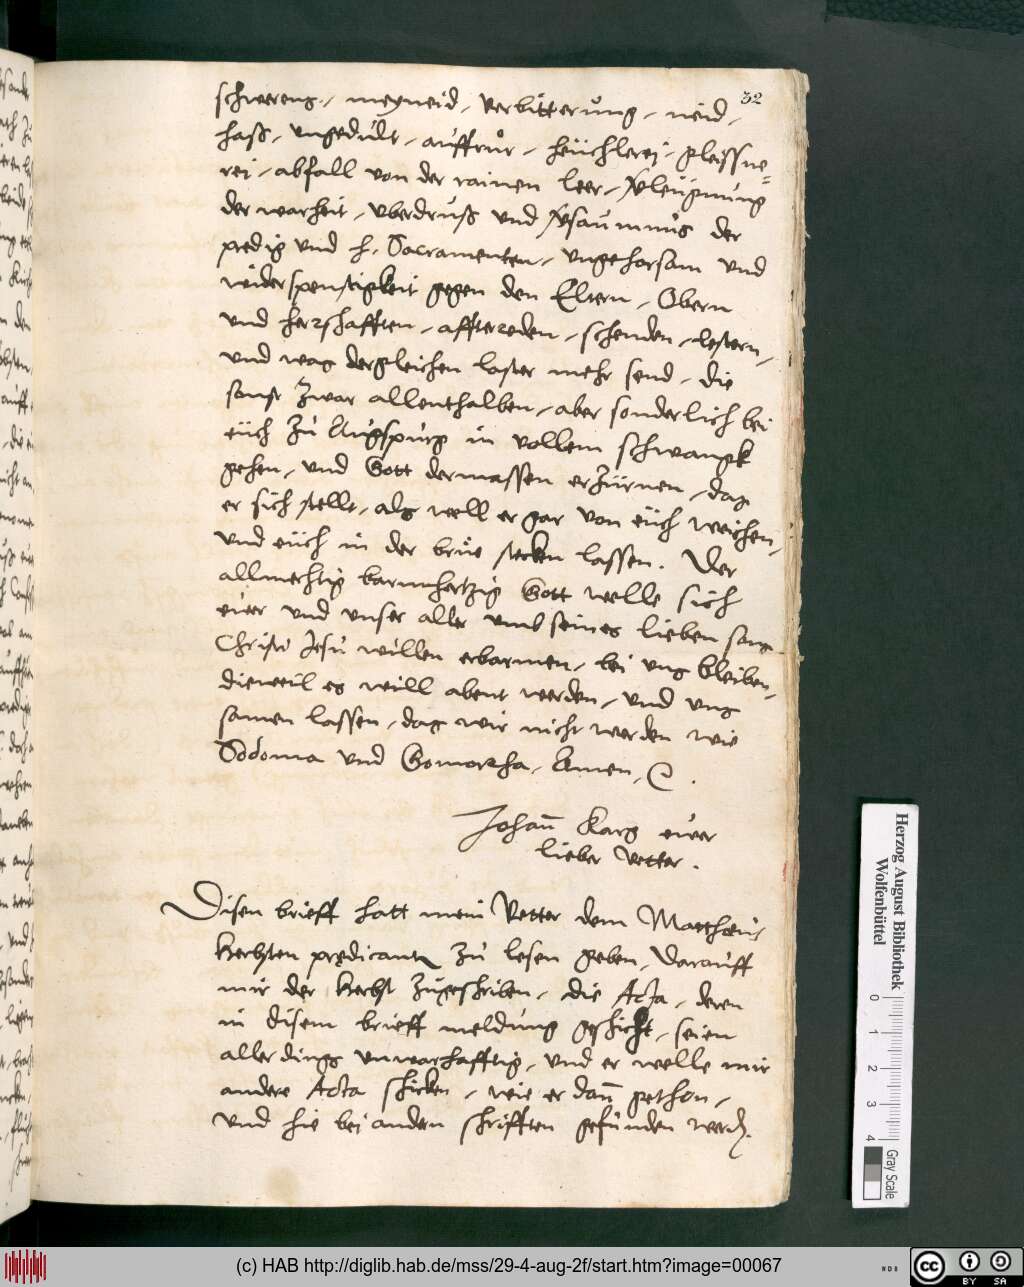 32
schwerens, meyneid, verbitterung, neid,
haß, ungedult, auffrůr, heüchlerei, gleissne=
rei, abfall von der rainen leer, v̄leügnung
der warheit, uberdruß und v̄saumnus der
predig und h. Sacramenten, ungehorsam und
widerspenstigkeit gegen den Eltern, Obern
und herrschafften, afftereden, schenden, lestern,
und was dergleichen laster mehr send, die
sonst zwar allenthalben, aber sonderlich bei
eüch zu Augspurg in vollem schwangk
gehen, und Gott dermassen erzürnen, das
er sich stellt, als well er gar von eüch weichen,
und eüch in der brüe stecken lassen. Der
allmechtig barmhertzig Gott welle sich
eüer und unser aller umb seines lieben sons
Christi Jesu willen erbarmen, bei uns bleiben,
dieweil es will abent werden, und uns
samen lassen, das wir nicht werden wie
Sodoma und Gomorrha, Amen,
Johan̄ Karg eüer
lieber Vetter.
Disen brieff hatt mein Vetter dem Mattheus
Herbsten predicanten zu lesen geben, Darauff
mir der Herbst zugeschriben, die Acta, deren
in disem brieff meldung geschicht, seien
allerdings unwarhafftig, und er welle mir
andere Acta schicken, wie er dan̄ gethon,
und hie bei andern schrifften gefunden werd.
Herzog August Bibliothek
Wolfenbüttel
0 1 2 3 4
Gray Scale
(c) HAB http://diglib.hab.de/mss/29-4-aug-2f/start.htm?image=00067
cc BY SA